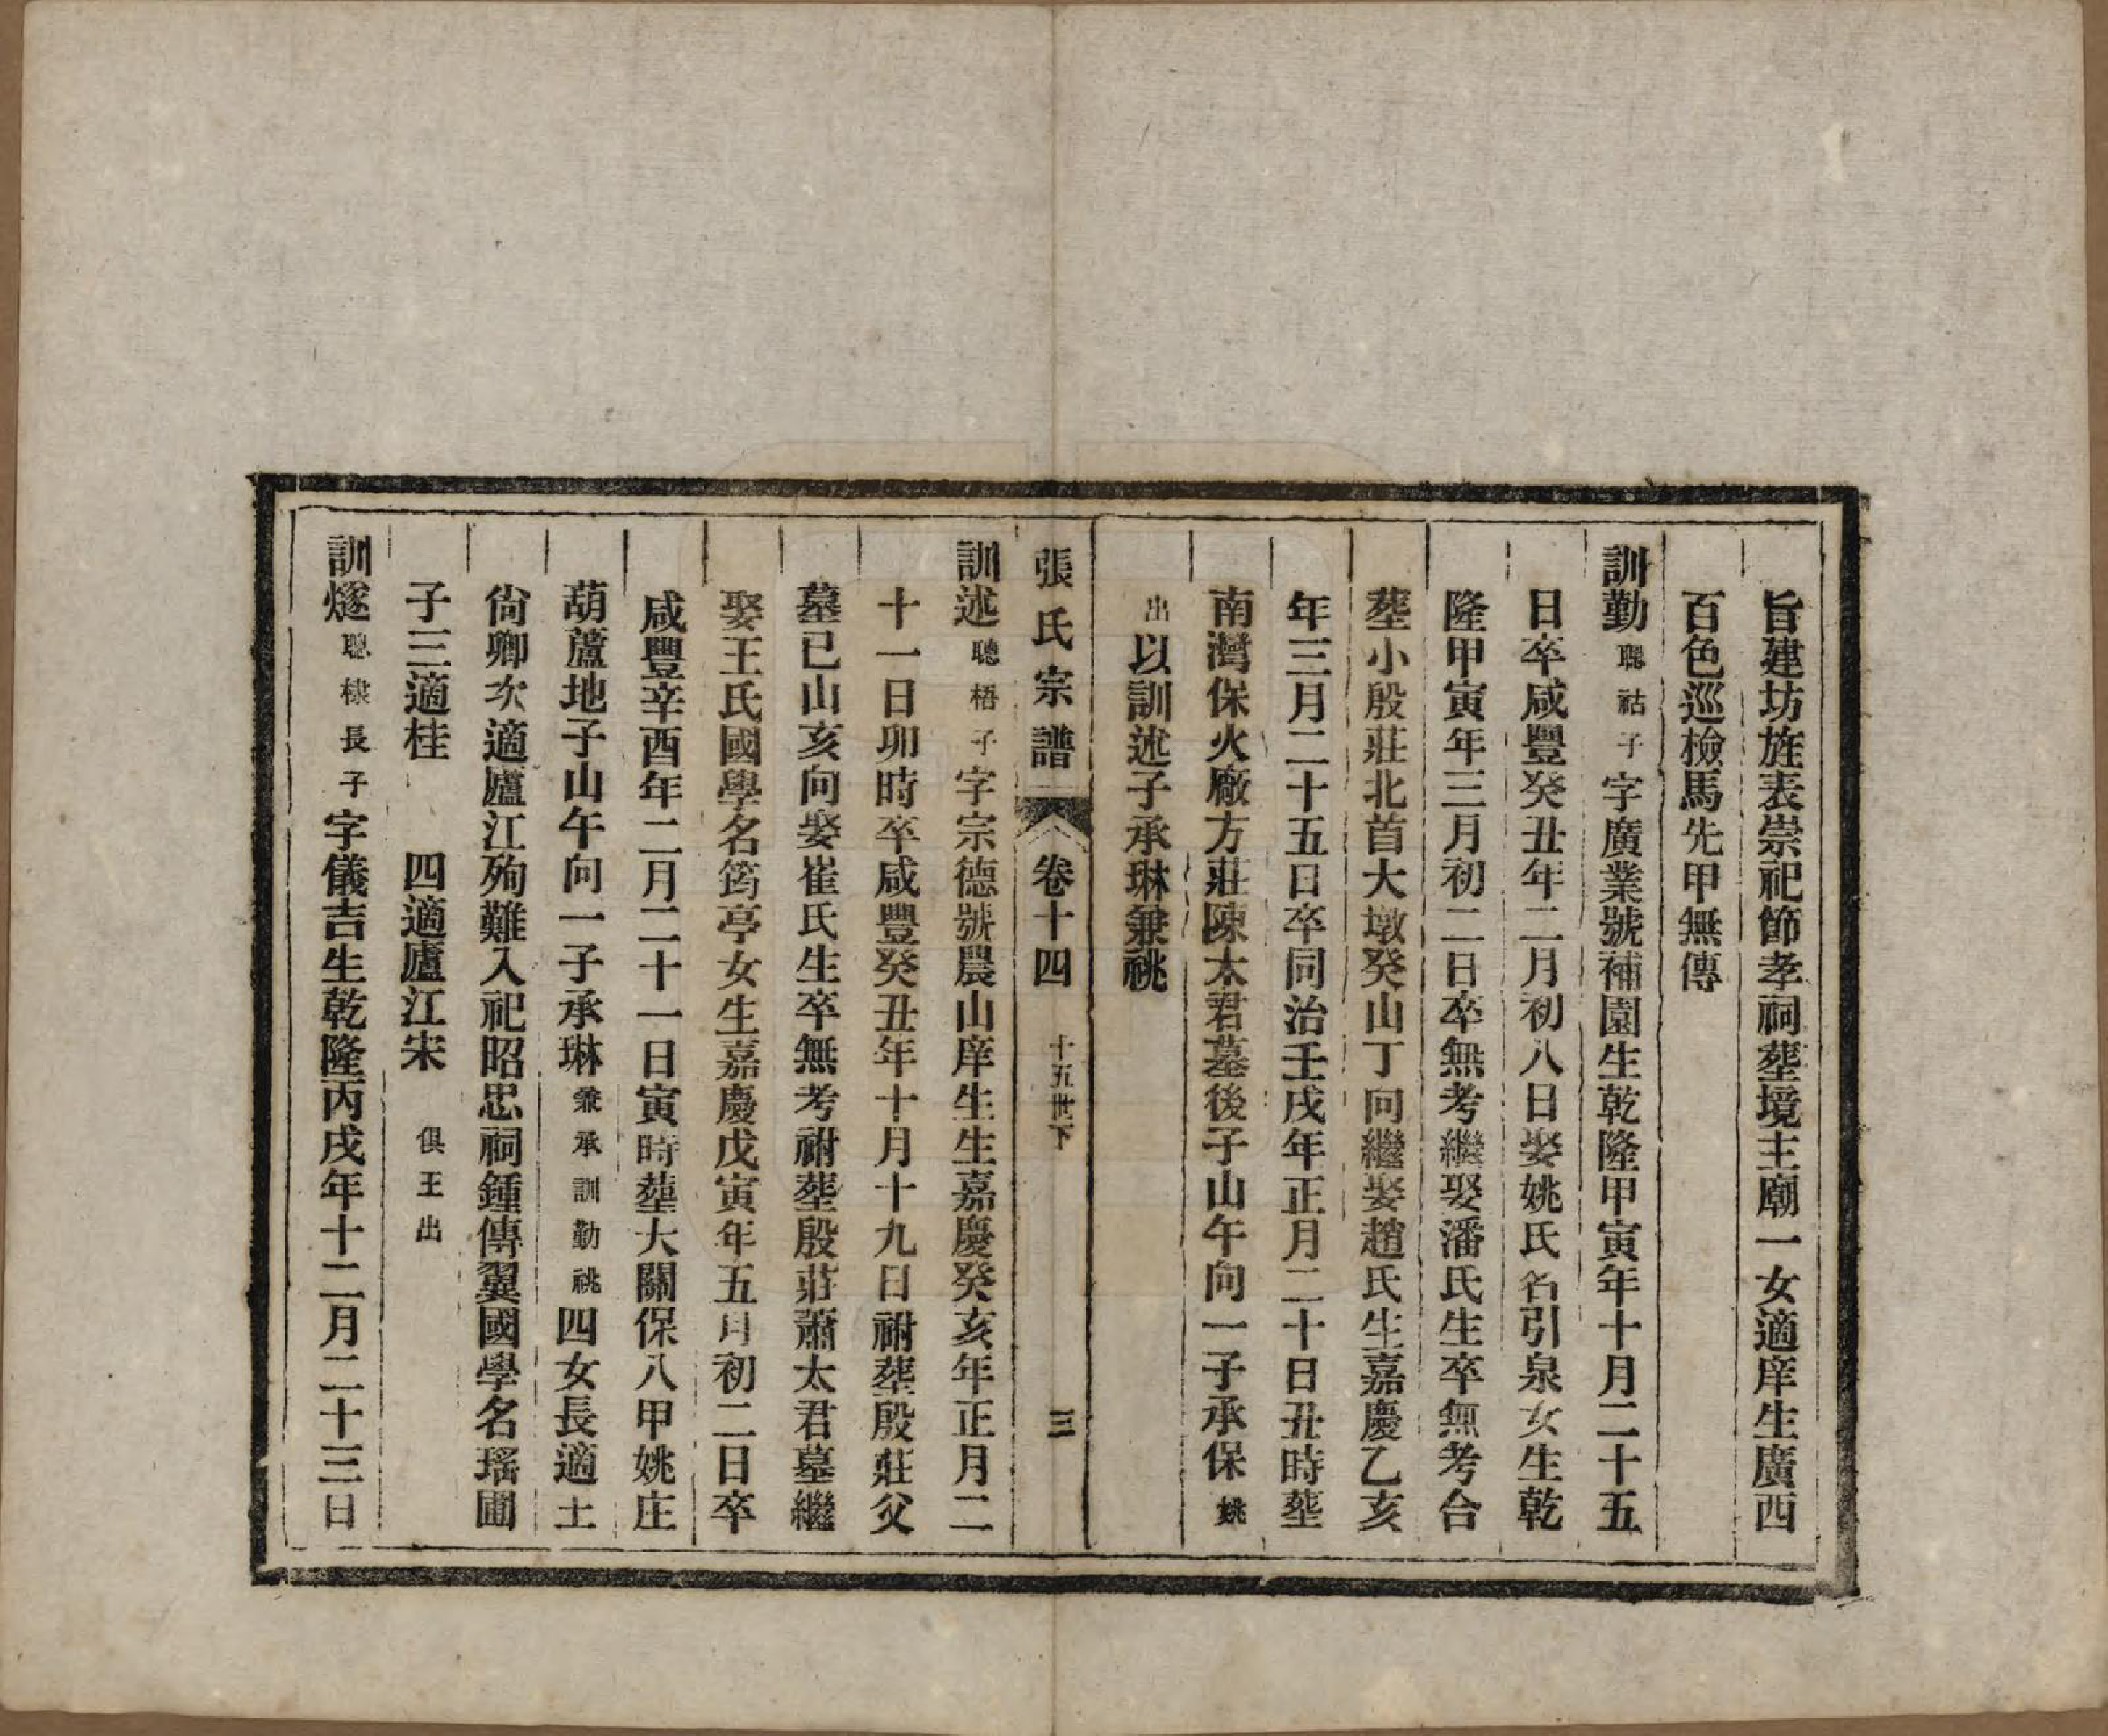 旨建坊旌表崇祀節孝祠塟境主廟一女適庠生廣西
百色巡檢馬先甲無傳
訓勤聰祜子字廣業號補園生乾隆甲寅年十月二十五
日卒咸豐癸丑年二月初八日娶姚氏名引泉女生乾
隆甲寅年三月初二日卒無考繼娶潘氏生卒無考合
塟小殷莊北首大墩癸山丁向繼娶趙氏生嘉慶乙亥
年三月二十五日卒同治壬戌年正月二十日丑時塟
南灣保火廠方莊陳太君墓後子山午向一子承保姚
出以訓述子承琳兼祧
張氏宗譜 卷十四 十五世下 三
訓述聰梧子字宗德號農山庠生生嘉慶癸亥年正月二
十一日卯時卒咸豐癸丑年十月十九日祔塟殷莊父
墓已山亥向娶崔氏生卒無考祔塟殷莊蕭太君墓繼
娶王氏國學名筠亭女生嘉慶戊寅年五月初二日卒
咸豐辛酉年二月二十一日寅時塟大關保八甲姚庄
葫蘆地子山午向一子承琳兼承訓勤祧四女長適土
尙卿次適廬江殉難入祀昭忠祠鍾傳翼國學名瑤圃
子三適桂 四適廬江宋 俱王出
訓燧聰棣長子字儀吉生乾隆丙戌年十二月二十三日